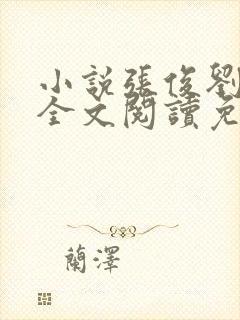 小說張俊劉
全文閱讀免
蘭澤